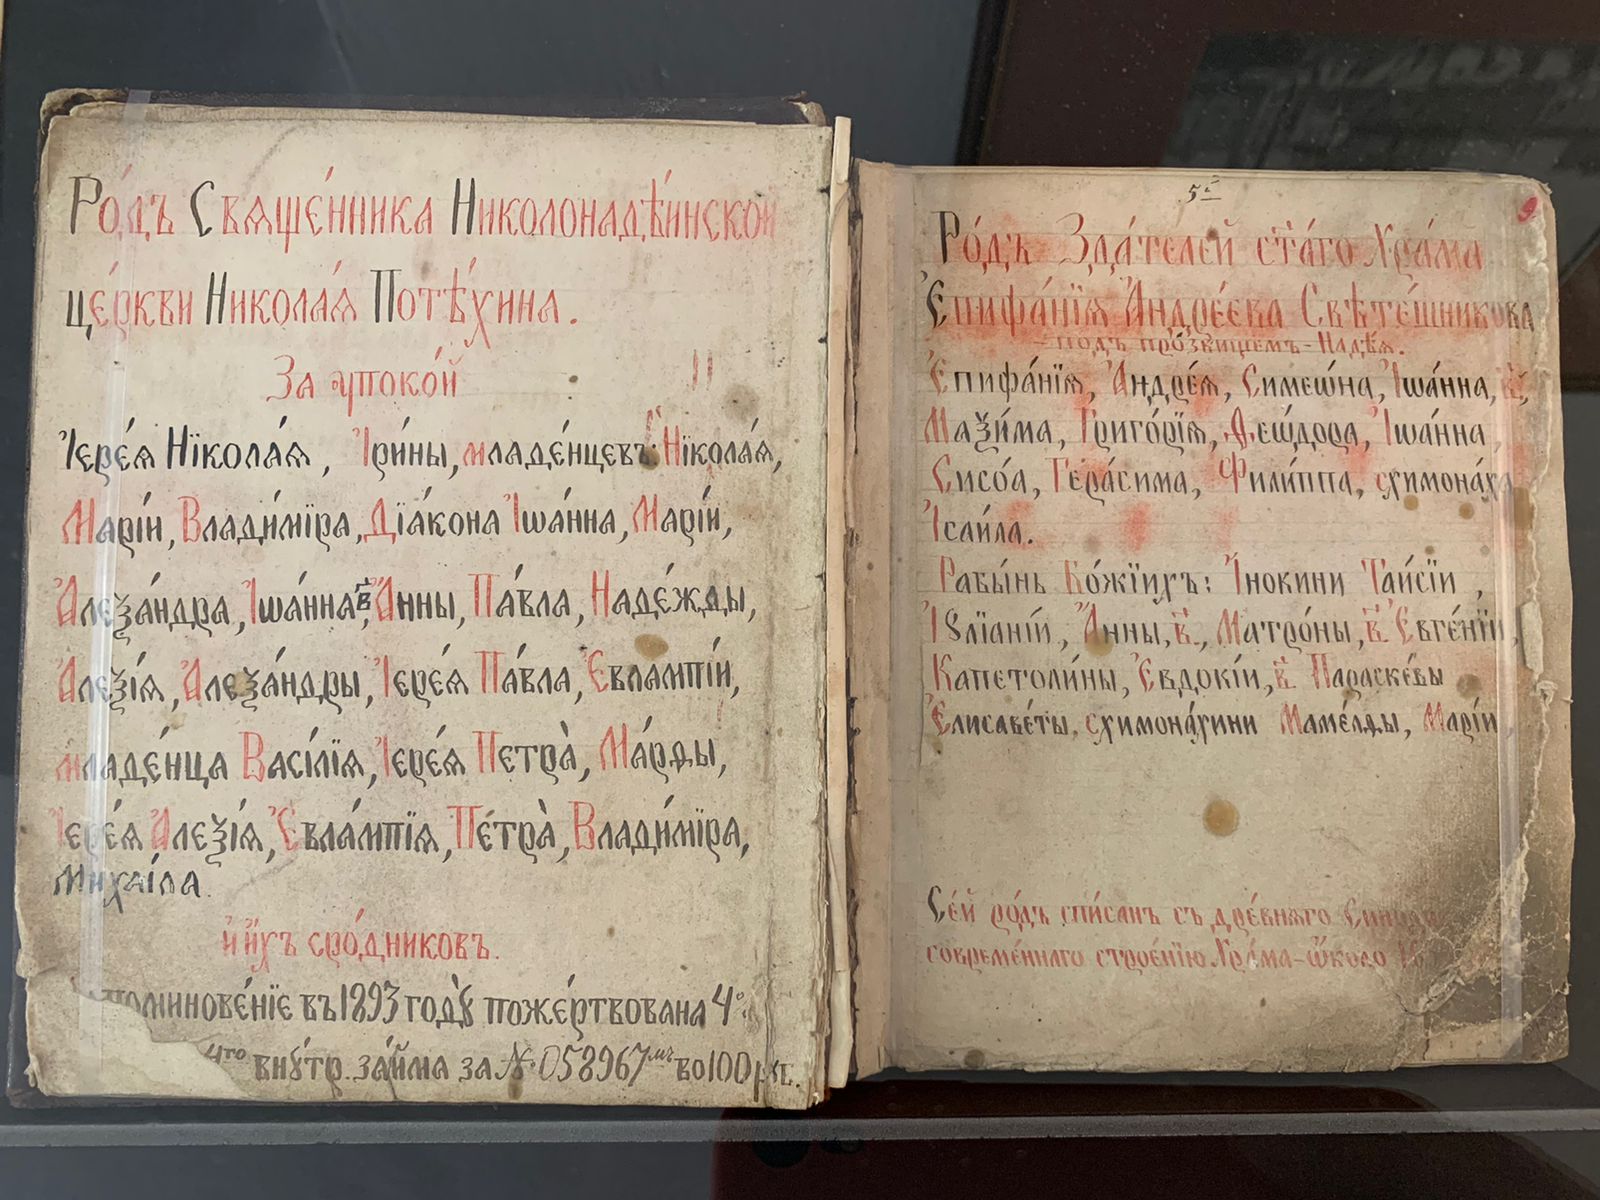 Ро́дъ Свѧще́нника Николонадѣ́инской
це́ркви Никола́ѧ Потѣ́хина.
За упоко́й
І҆ере́ѧ Нїкола́ѧ, І҆ри́ны, младе́нцевъ: Нїкола́ѧ,
Марі́и, Влади́мїра, Дїа́кона І҆ѡа́нна, Марі́и,
А҆леѯа́ндра, І҆ѡа́нна, в҃, А҆́нны, Па́вла, Наде́жды,
А҆леѯі́ѧ, А҆леѯа́ндры, І҆ере́ѧ Па́вла, Е҆вла́мпїи,
младе́нца Васі́лїѧ, І҆ере́ѧ Петра̀, Ма́рѳы,
І҆ере́ѧ А҆леѯі́ѧ, Е҆вла́мпїѧ, Пе́тра̀, Влади́мїра,
Михаи́ла
и҆ и҆́хъ сро́дниковъ.
поминове́нїе въ 1893 годꙋ̀ поже́ртвована 4%
4го внꙋ́тр. за́йма за № 058967мъ во 100 рꙋб.
5й
9
Ро́дъ Зда́телей ст҃а́го Хра́ма
Е҆пифа́нїѧ А҆ндре́ева Свѣте́шникова
– подъ про́звищемъ – Надѣ́ѧ.
Е҆пифа́нїѧ, А҆ндре́ѧ, Симеѡ́на, І҆ѡа́нна, в҃,
Маѯи́ма, Григо́рїѧ, Ѳеѡ́дора, І҆ѡа́нна,
Сисо́а, Гера́сима, Фили́ппа, схимона́ха
І҆саи́ла.
Рабы́нь Бо́жїихъ: И҆́нокини Таи́сїи,
І҆ꙋлїані́и, А҆́нны, в҃, Матро́ны, в҃, Е҆вге́нїи,
Капетоли́ны, Е҆вдокі́и, в҃, Параске́вы
Е҆лисаве́ты, схимона́хини Маме́лѳы, Марі́и,
Се́й ро́дъ спи́санъ съ дре́внѧго
совреме́ннаго строе́нїю Хра́ма – ѡ҆́коло